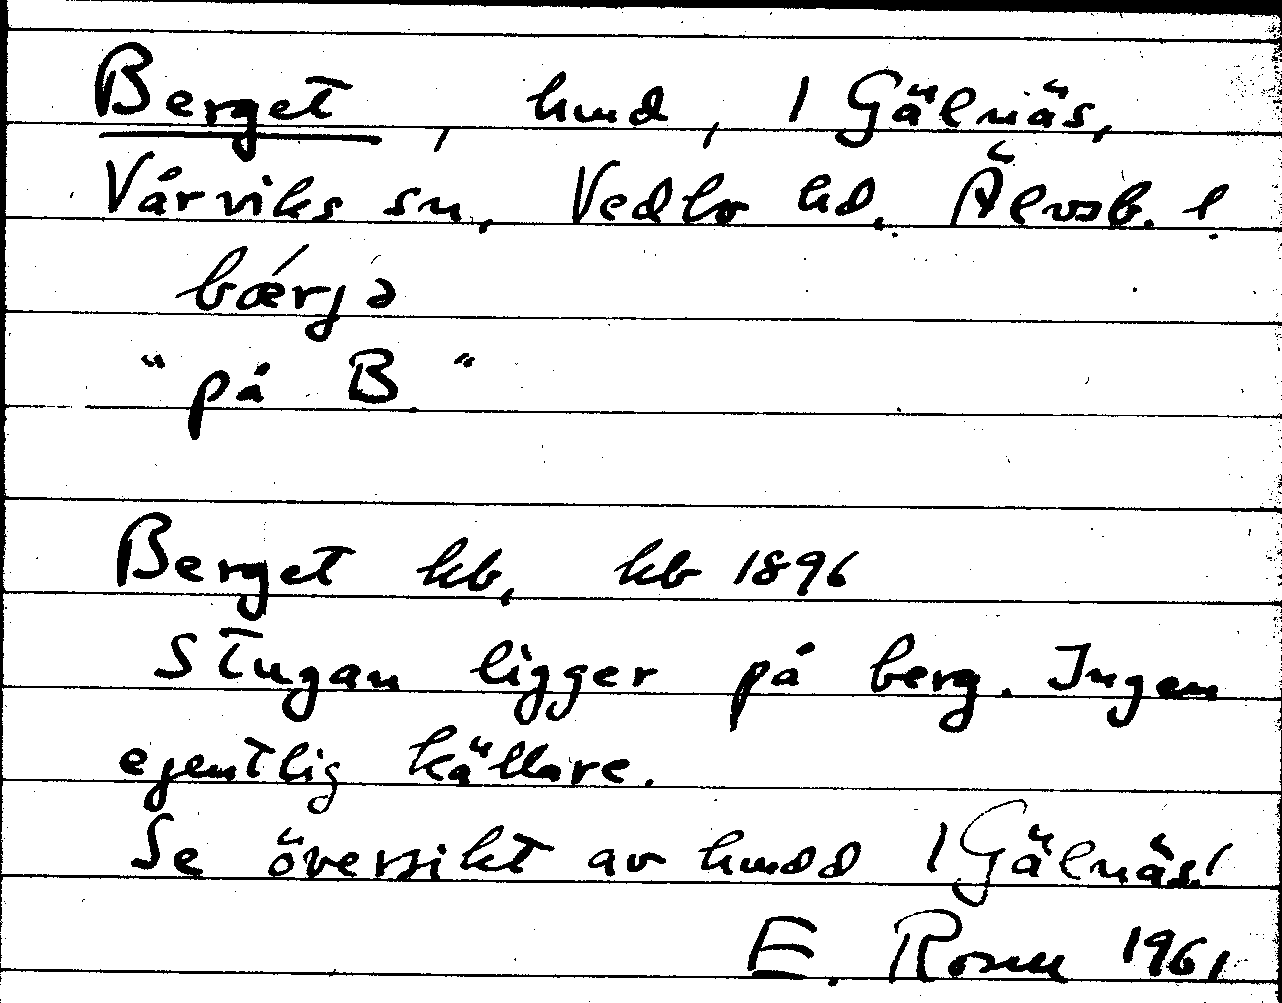 Berget, hmd, 1 Gälnäs,
Vårviks sn, Vedbo hd. Älvsb. l
bǽrjə
"på B."
Berget kb, kb 1896
Stugan ligger på berg. Ingen
egentlig källare.
Se översikt av hmdd 1 Gälnäs!
E. 1961